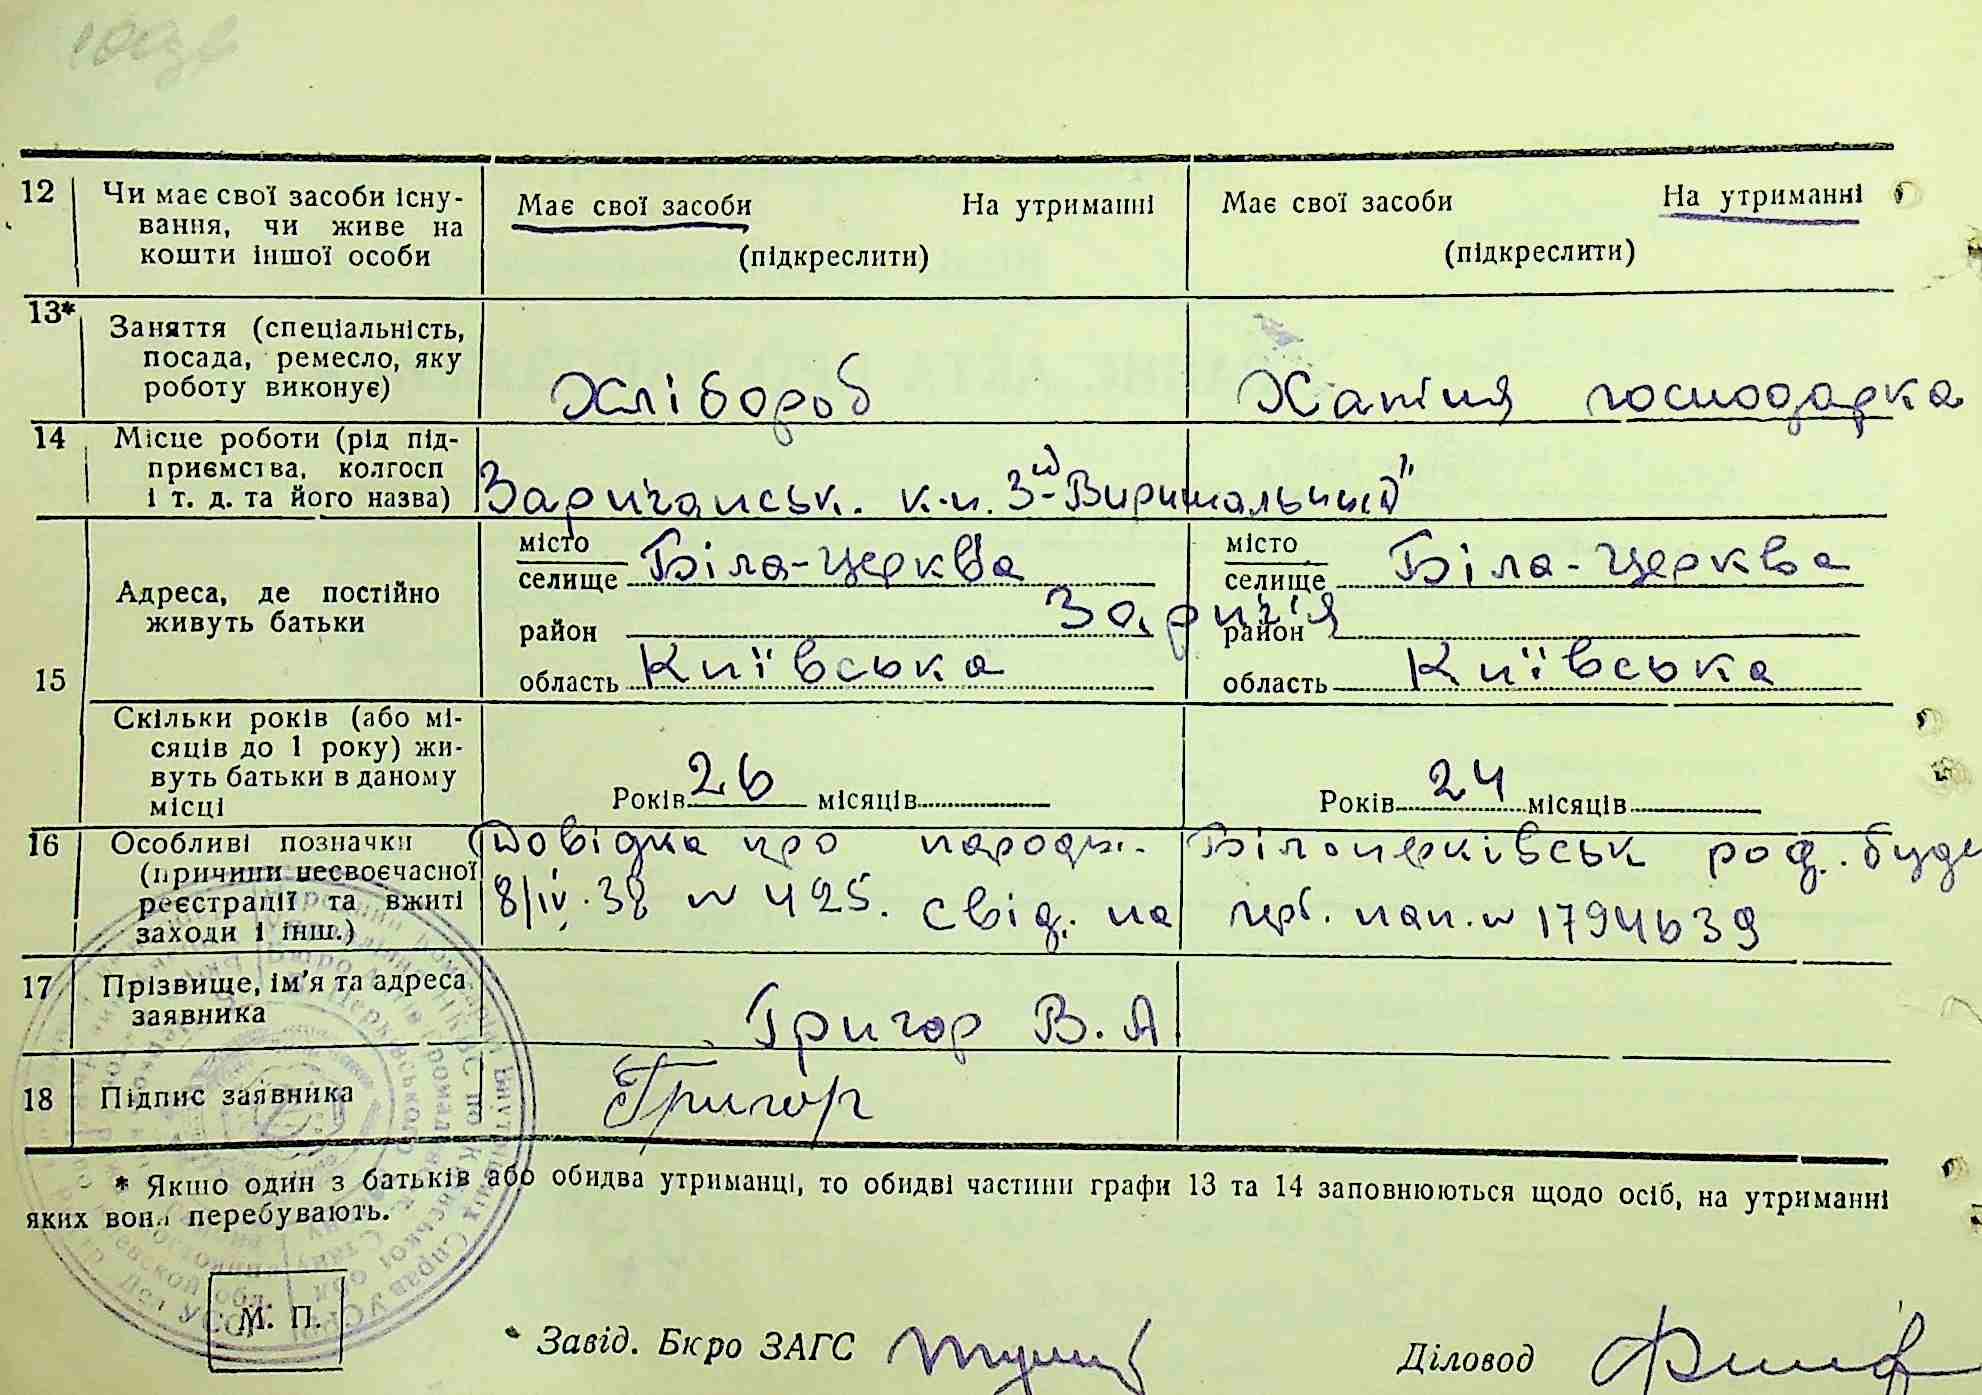 12 Чи має свої засоби існу-
вання, чи живе на
кошти іншої особи
Має свої засоби На утриманні
(підкреслити)
Має свої засоби На утриманні
(підкреслити)
13* Заняття (спеціальність,
посада, ремесло, яку
роботу виконує)
Хлібороб
Хатня господарка
14 Місце роботи (рід під-
приємства, колгосп
і т. д. та його назва)
Заричанськ. к-п. 3-й Вирішальний"
15 Адреса, де постійно
живуть батьки
місто
селище Біла-Церква
район Заріч'я
область Київська
місто
селище Біла-Церква
район
область Київська
Скільки років (або мі-
сяців до 1 року) жи-
вуть батьки в даному
місці
Років 26 місяців
Років 24 місяців
16 Особливі позначки
(причини несвоєчасної
реєстрації та вжиті
заходи і інш.)
Довідка про народж. Білоцерківськ род. буд
8/IV.38 № 425. свід. на грб. пап. № 1794639
17 Прізвище, ім'я та адреса
заявника
Григор В. А
18 Підпис заявника
Григор
* Якшо один з батьків або обидва утриманці, то обидві частини графи 13 та 14 заповнюються щодо осіб, на утриманні
яких вони перебувають.
М. П.
Завід. Бюро ЗАГС
Діловод